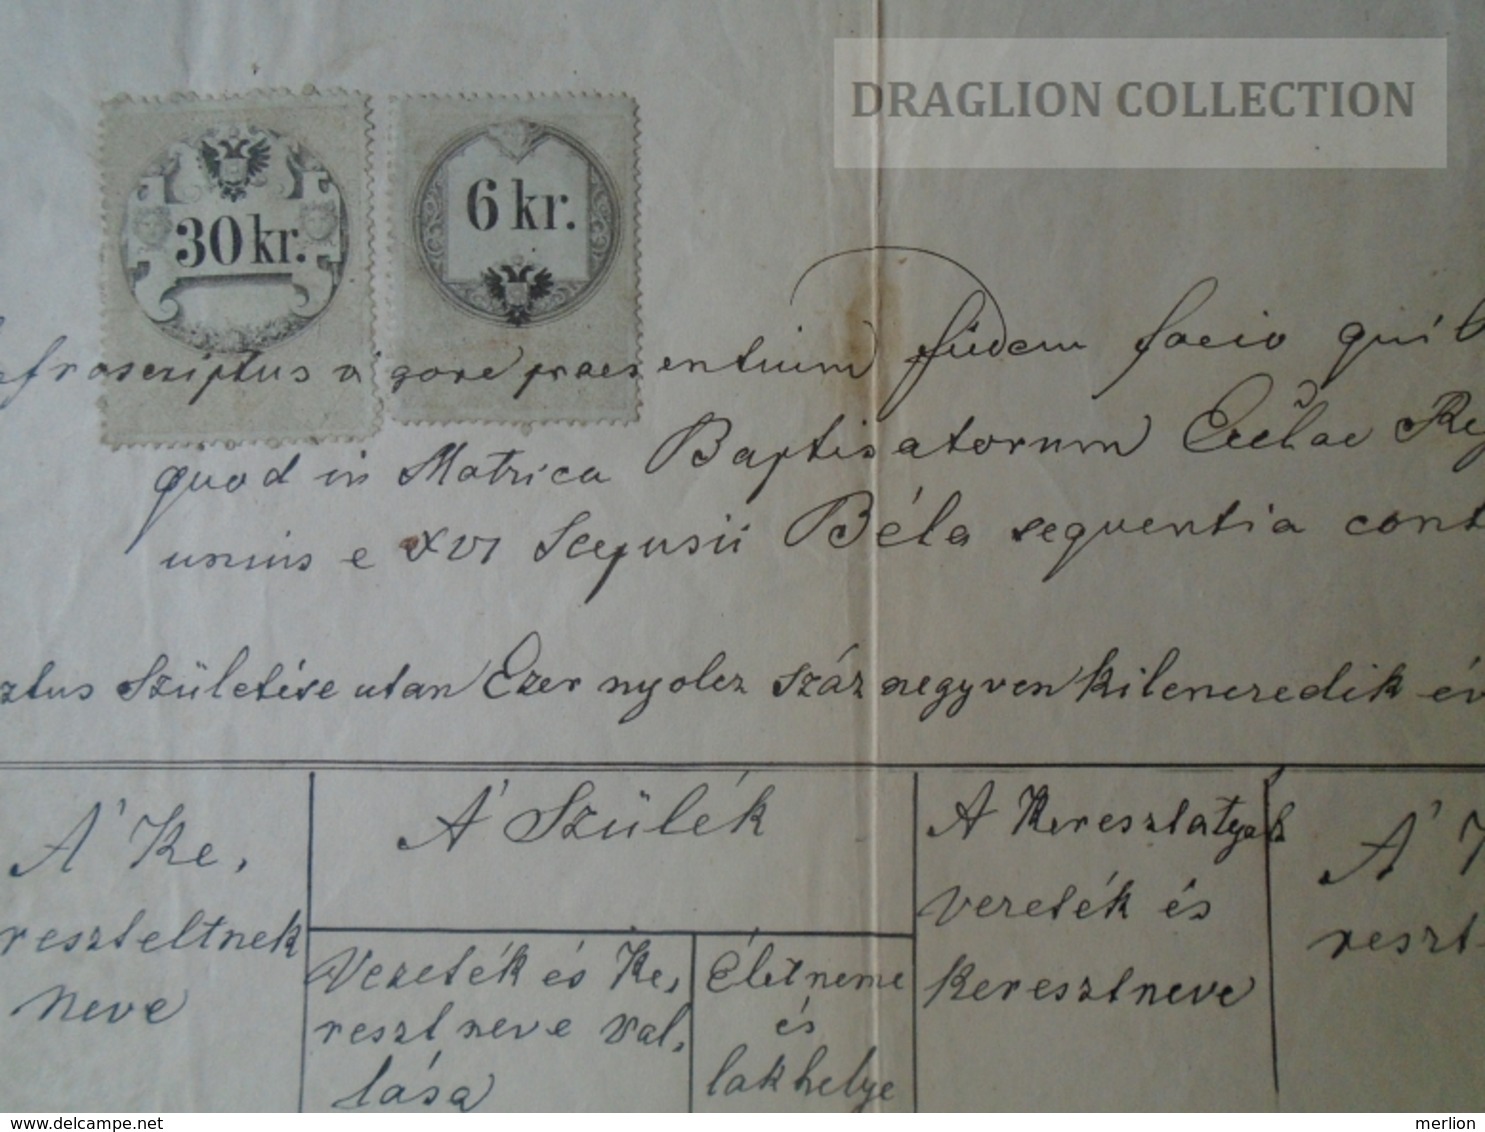 DRAGLION COLLECTION
30 kr.
6 kr.
froscriptus vigore praesentium fidem facio
quod in Matrica Baptisatorum
unius e XVI Scepusii Béla sequentia cont
ztus Születése utan Ezer nyolcz száz negyven kilenczedik év
A' Ke,
reszteltnek
neve
A' Szülék
Vezeték és Ke,
reszt neve val,
lása
Életneme
és
lakhelye
A Keresztatyák
vezeték és
keresztneve
A' K
reszt
delcampe.net
merlion